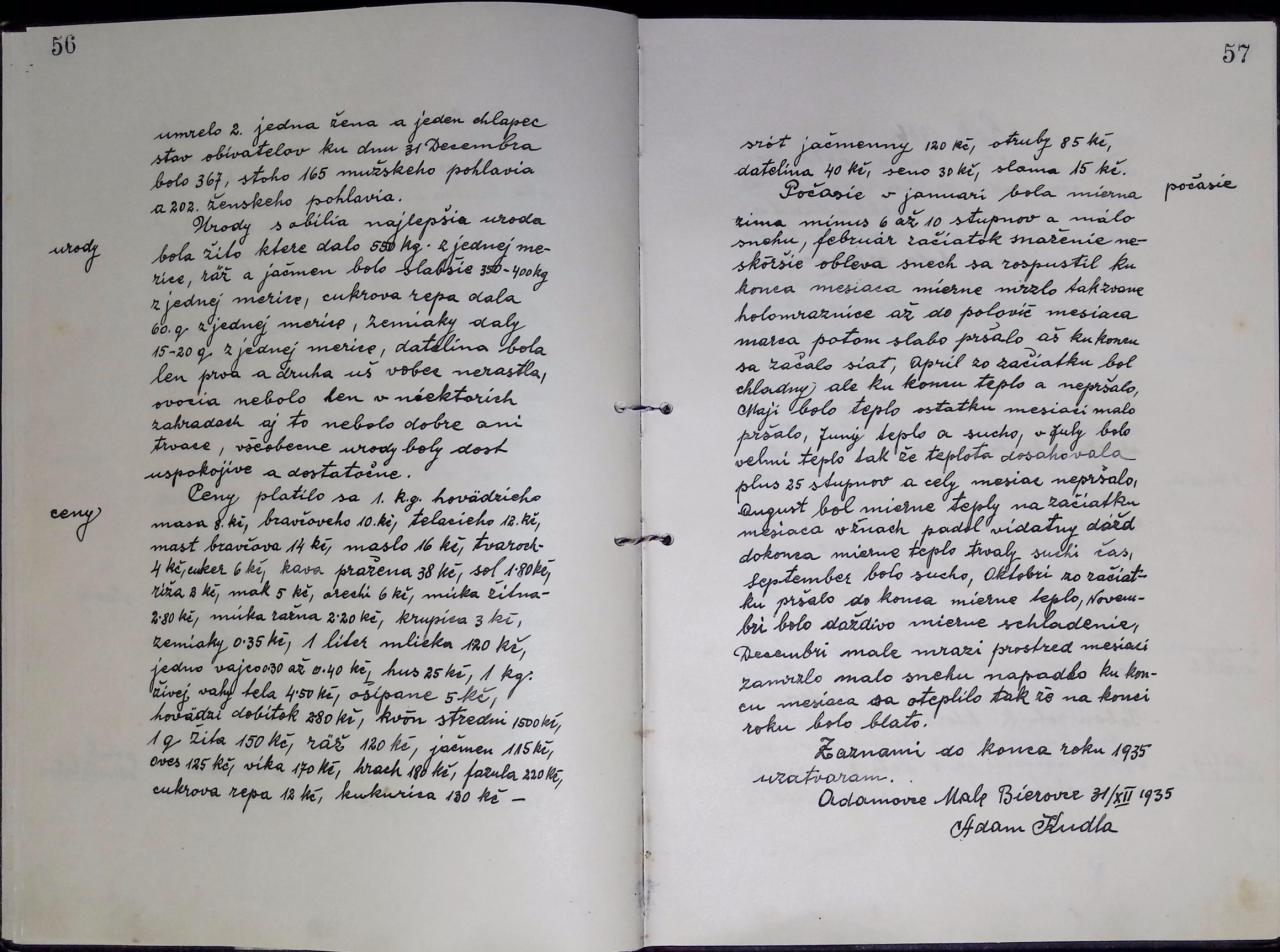 56
umrelo 2. jedna žena a jeden chlapec
stav obívatelov ku dnu 31 Decembra
bolo 367, stoho 165 mužskeho pohlavia
a 202. ženskeho pohlavia.
Urody s obilia najlepšia uroda
urody
bola žito ktere dalo 550 kg. z jednej me-
rice, räž a jačmen bolo slabšie 350-400 kg
z jednej merice, cukrova repa dala
60. q. z jednej merice, zemiaky daly
15-20 q. z jednej merice, datelina bola
len prva a druha uš vobec nerastla,
ovocia nebolo len v niektorich
zahradach aj to nebolo dobre ani
trvace, všeobecne urody boly dost
uspokojive a dostatočne.
Ceny platilo sa 1. kg. hovädzieho
ceny
masa 8. kč, bravčoveho 10. kč, telacieho 12. kč,
mast bravčova 14 kč, maslo 16 kč, tvaroch-
4 kč, cuker 6 kč, kava pražena 38 kč, sol 1·80 kč,
riža 3 kč, mak 5 kč, orechi 6 kč, muka žitna-
2·80 kč, muka ražna 2·20 kč, krupica 3 kč,
zemiaky 0·35 kč, 1 liter mlieka 120 kč,
jedno vajco 0·30 až 0·40 kč, hus 25 kč, 1 kg.
živej vahy tela 4·50 kč, ošipane 5 kč,
hovädzi dobitok 280 kč, kvôn stredni 1500 kč,
1 q. žita 150 kč, räž 120 kč, jačmen 115 kč,
oves 125 kč, vika 170 kč, hrach 180 kč, fazula 220 kč,
cukrova repa 12 kč, kukurica 130 kč —
57
srót jačmenny 120 kč, otruby 85 kč,
datelina 40 kč, seno 30 kč, slama 15 kč.
Počasie v januari bola mierna
počasie
zima minus 6 až 10 stupnov a málo
snehu, február začiatok snaženie ne-
skôršie obleva snech sa rospustil ku
konca mesiaca mierne mrzlo takzvane
holomraznice až do polovič mesiaca
marca potom slabo pršalo aš ku koncu
sa začalo siat, April zo začiatku bol
chladny ale ku koncu teplo a nepršalo,
Maji bolo teplo ostatku mesiaci malo
pršalo, Juny teplo a sucho, v July bolo
velmi teplo tak že teplota dosahovala
plus 25 stupnov a cely mesiac nepršalo,
August bol mierne teply na začiatku
mesiaca v žnach padol vidatny dážd
dokonca mierne teplo trvaly suchi čas,
September bolo sucho, Oktobri zo začiat-
ku pršalo do konca mierne teplo, Novem-
bri bolo daždivo mierne schladenie,
Decembri male mrazi prostred mesiaci
zamrzlo malo snehu napadlo ku kon-
cu mesiaca sa oteplilo tak že na konci
roku bolo blato.
Zaznami do konca roku 1935
uzatvaram.
Adamovce Male Bierovce 31/XII 1935
Adam Kudla